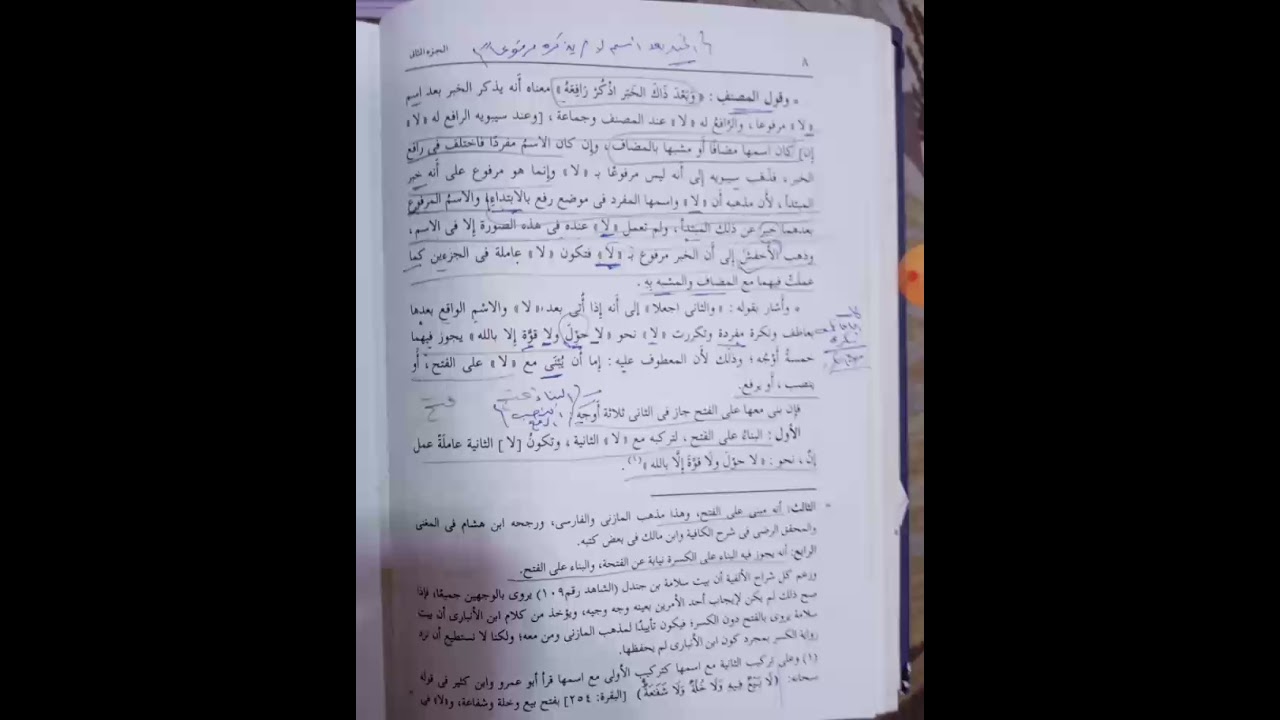 ٨ الجزء الثاني
الخبر بعد اسم لا يذكره مرفوعا
* وقول المصنف : « وَبَعْدَ ذَاكَ الخَبَرَ اذْكُرْ رَافِعَهْ » معناه أنه يذكر الخبر بعد اسم
« لا » مرفوعا ، والرَّافعُ له « لا » عند المصنف وجماعة ، [وعند سيبويه الرافع له « لا »
إن] كان اسمها مضافًا أو مشبها بالمضاف ، وإن كان الاسمُ مفردًا فاختلف فى رافع
الخبر ، فذهب سيبويه إلى أنه ليس مرفوعًا بـ « لا » وإنما هو مرفوع على أنه خبر
المبتدأ ، لأن مذهبه أن « لا » واسمها المفرد فى موضع رفع بالابتداء ، والاسمُ المرفوع
بعدهما خبر عن ذلك المبتدأ ، ولم تعمل « لا » عنده فى هذه الصورة إلا فى الاسم ،
وذهب الأخفش إلى أن الخبر مرفوع بـ « لَا » فتكون « لا » عاملة فى الجزءين كما
عملَتْ فيهما مع المضاف والمشبه بِهِ .
* وأشار بقوله : « والثانى اجعلا » إلى أنه إذا أُتى بعد « لا » والاسْمِ الواقع بعدها
بعاطف ونكرة مفردة وتكررت « لا » نحو « لا حَوْلَ ولا قوَّة إلا بالله » يجوز فيهما
خمسةُ أوْجُه ؛ وذلك لأن المعطوف عليه : إما أن يُبْنَى مع « لا » على الفتح ، أو
ينصب ، أو يرفع.
فإن بنى معها على الفتح جاز فى الثانى ثلاثة أوْجَهِ
البناء
النصب
الرفع
فتح
الأول : البناءُ على الفتح ، لتركبه مع « لا » الثانية ، وتكونُ [ لا ] الثانية عاملَةً عمل
إنَّ ، نحو : « لا حوْلَ ولَا قوَّةَ إلَّا بالله »(١).
= الثالث: أنه مبنى على الفتح، وهذا مذهب المازنى والفارسى، ورجحه ابن هشام فى المغنى
والمحقق الرضى فى شرح الكافية وابن مالك فى بعض كتبه.
الرابع: أنه يجوز فيه البناء على الكسرة نيابة عن الفتحة، والبناء على الفتح.
وزعم كل شراح الألفية أن بيت سلامة بن جندل (الشاهد رقم ١٠٩) يروى بالوجهين جميعًا، فإذا
صح ذلك لم يكن لإيجاب أحد الأمرين بعينه وجه وجيه، ويؤخذ من كلام ابن الأنبارى أن بيت
سلامة يروى بالفتح دون الكسر؛ فيكون تأييدًا لمذهب المازنى ومن معه؛ ولكنا لا نستطيع أن نرد
رواية الكسر بمجرد كون ابن الأنبارى لم يحفظها.
(١) وعلى تركيب الثانية مع اسمها كتركيب الأولى مع اسمها قرأ أبو عمرو وابن كثير فى قوله
سبحانه: (لَا بَيْعَ فِيهِ وَلَا خُلَّةَ وَلَا شَفَاعَةَ) [البقرة: ٢٥٤] بفتح بيع وخلة وشفاعة، و«لا» فى =